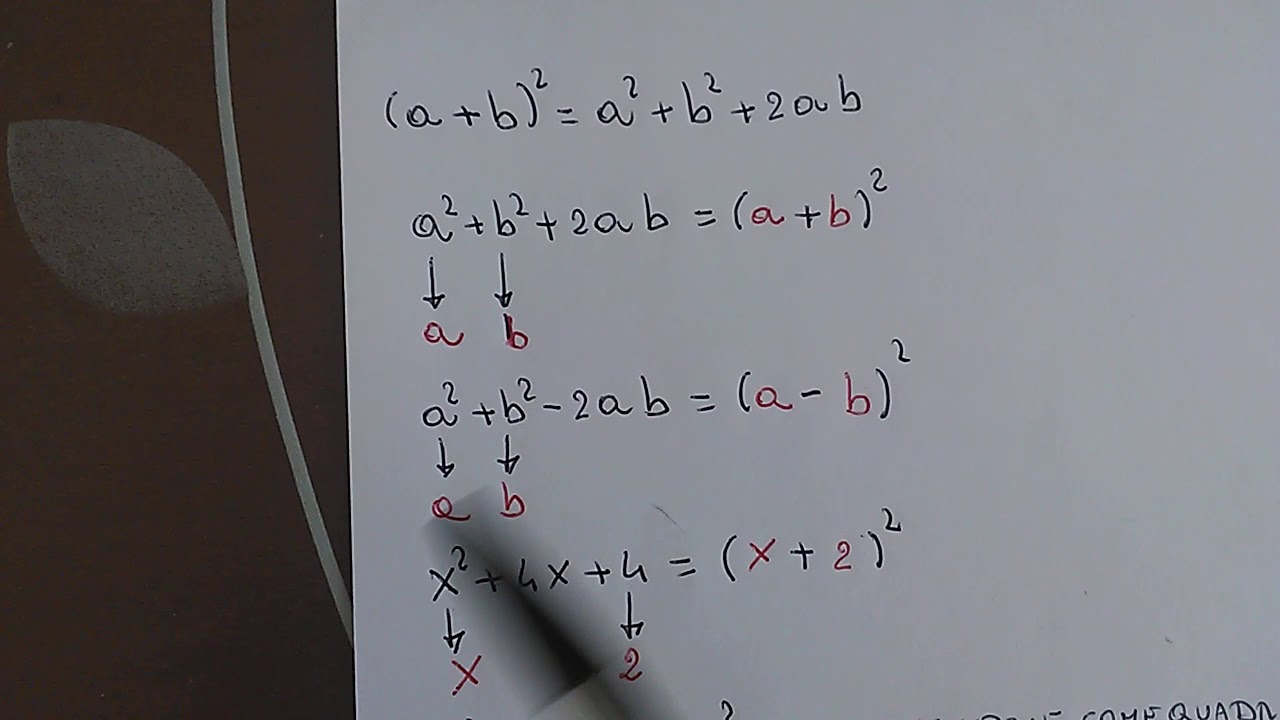 (a+b)²=a²+b²+2ab
a²+b²+2ab=(a+b)²
↓ ↓
a b
a²+b²-2ab=(a-b)²
↓ ↓
a b
x²+4x+4=(x+2)²
↓ ↓
x 2